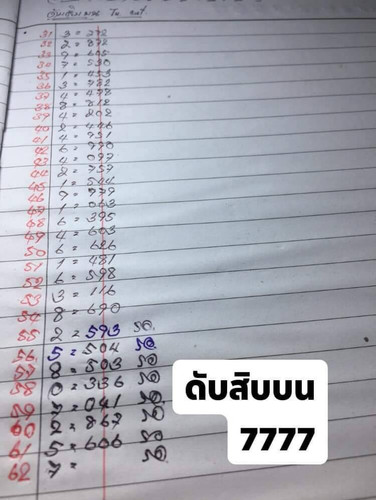 31 3 = 372
32 2 = 872
33 9 = 605
34 7 = 530
35 1 = 453
36 3 = 782
37 4 = 478
38 8 = 812
39 4 = 202
40 2 = 446
41 4 = 751
42 6 = 770
43 4 = 097
44 2 = 757
45 1 = 544
46 9 = 779
47 1 = 063
48 6 = 395
49 4 = 603
50 6 = 626
51 1 = 481
52 6 = 598
53 3 = 116
54 8 = 690
55 2 = 593 50
56 5 = 504 50
57 8 = 503 50
58 0 = 336 50
59 7 = 041 50
60 2 = 867 50
61 5 = 606 50
62 7 =
ดับสิบบน
7777